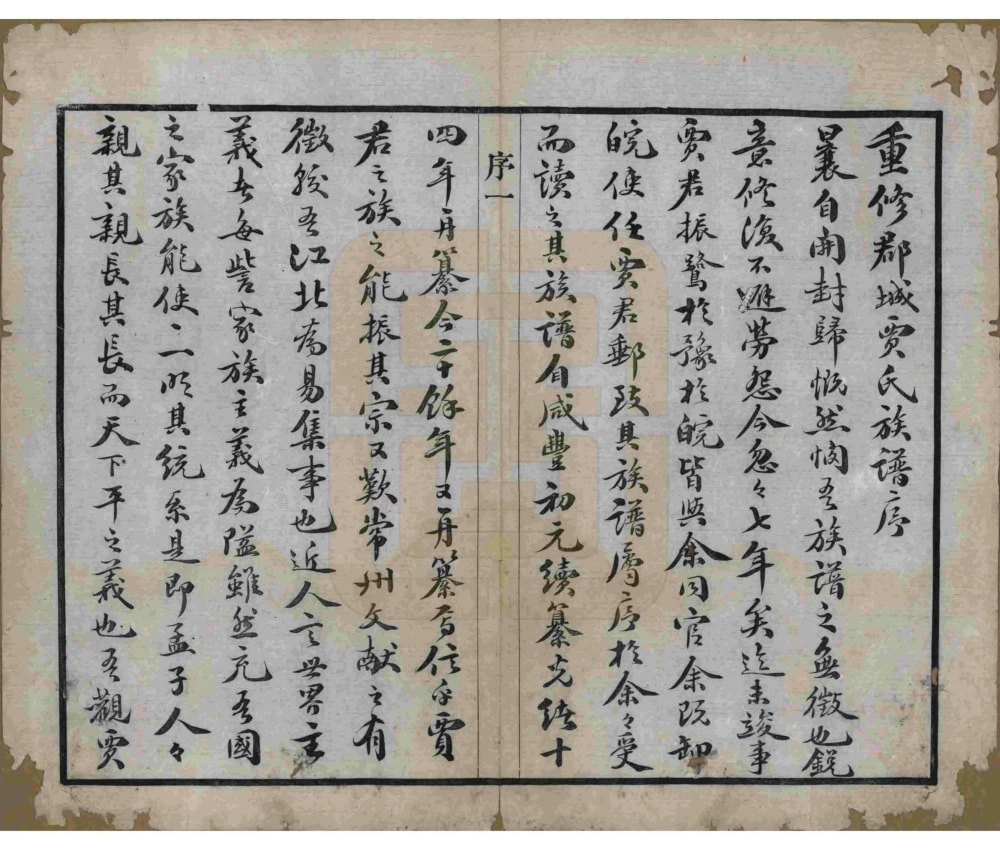 重修郡城賈氏族譜序
曩自開封歸慨然憫吾族譜之無徵也銳
意修復不避勞怨今忽々七年矣迄未竣事
賈君振鷺於豫於皖皆與余同官余既卸
皖使任賈君郵致其族譜屬序於余々受
而讀之其族譜自咸豐初元續纂光緒十
序一
四年再纂今二十餘年又再纂焉信乎賈
君之族之能振其宗又歎常州文献之有
徵殆吾江北為易集事也近人言世界主
義者每訾家族主義為隘雖然充吾國
之家族能使一一明其統系是即孟子人々
親其親長其長而天下平之義也吾觀賈